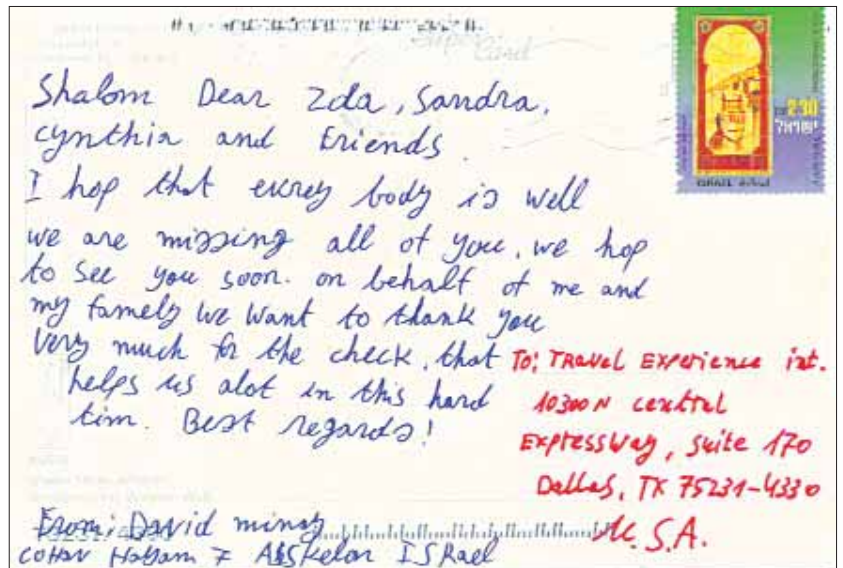 Shalom Dear Zda, Sandra,
Cynthia and Friends
I hop that evrey body is well
we are missing all of you, we hop
to see you soon. on behalf of me and
my famely we want to thank you
very much for the check, that
helps us alot in this hard
tim. Best regards!
To: Travel Experience int.
10300 N central
Expressway, suite 170
Dallas, TX 75231-4330
U.S.A.
From: David
7 ISRael
2.30
ישראל
ISRAEL